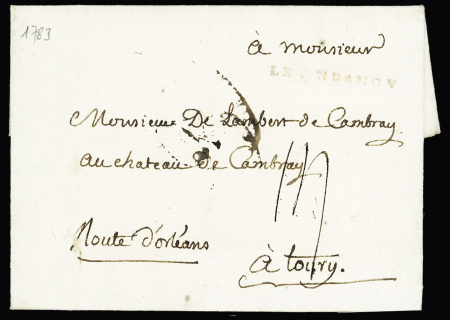 1783
à monsieur
LE QUESNOY
Monsieur De Lambert de Cambray
au chateau de Cambray
Route d'orléans
à toury.